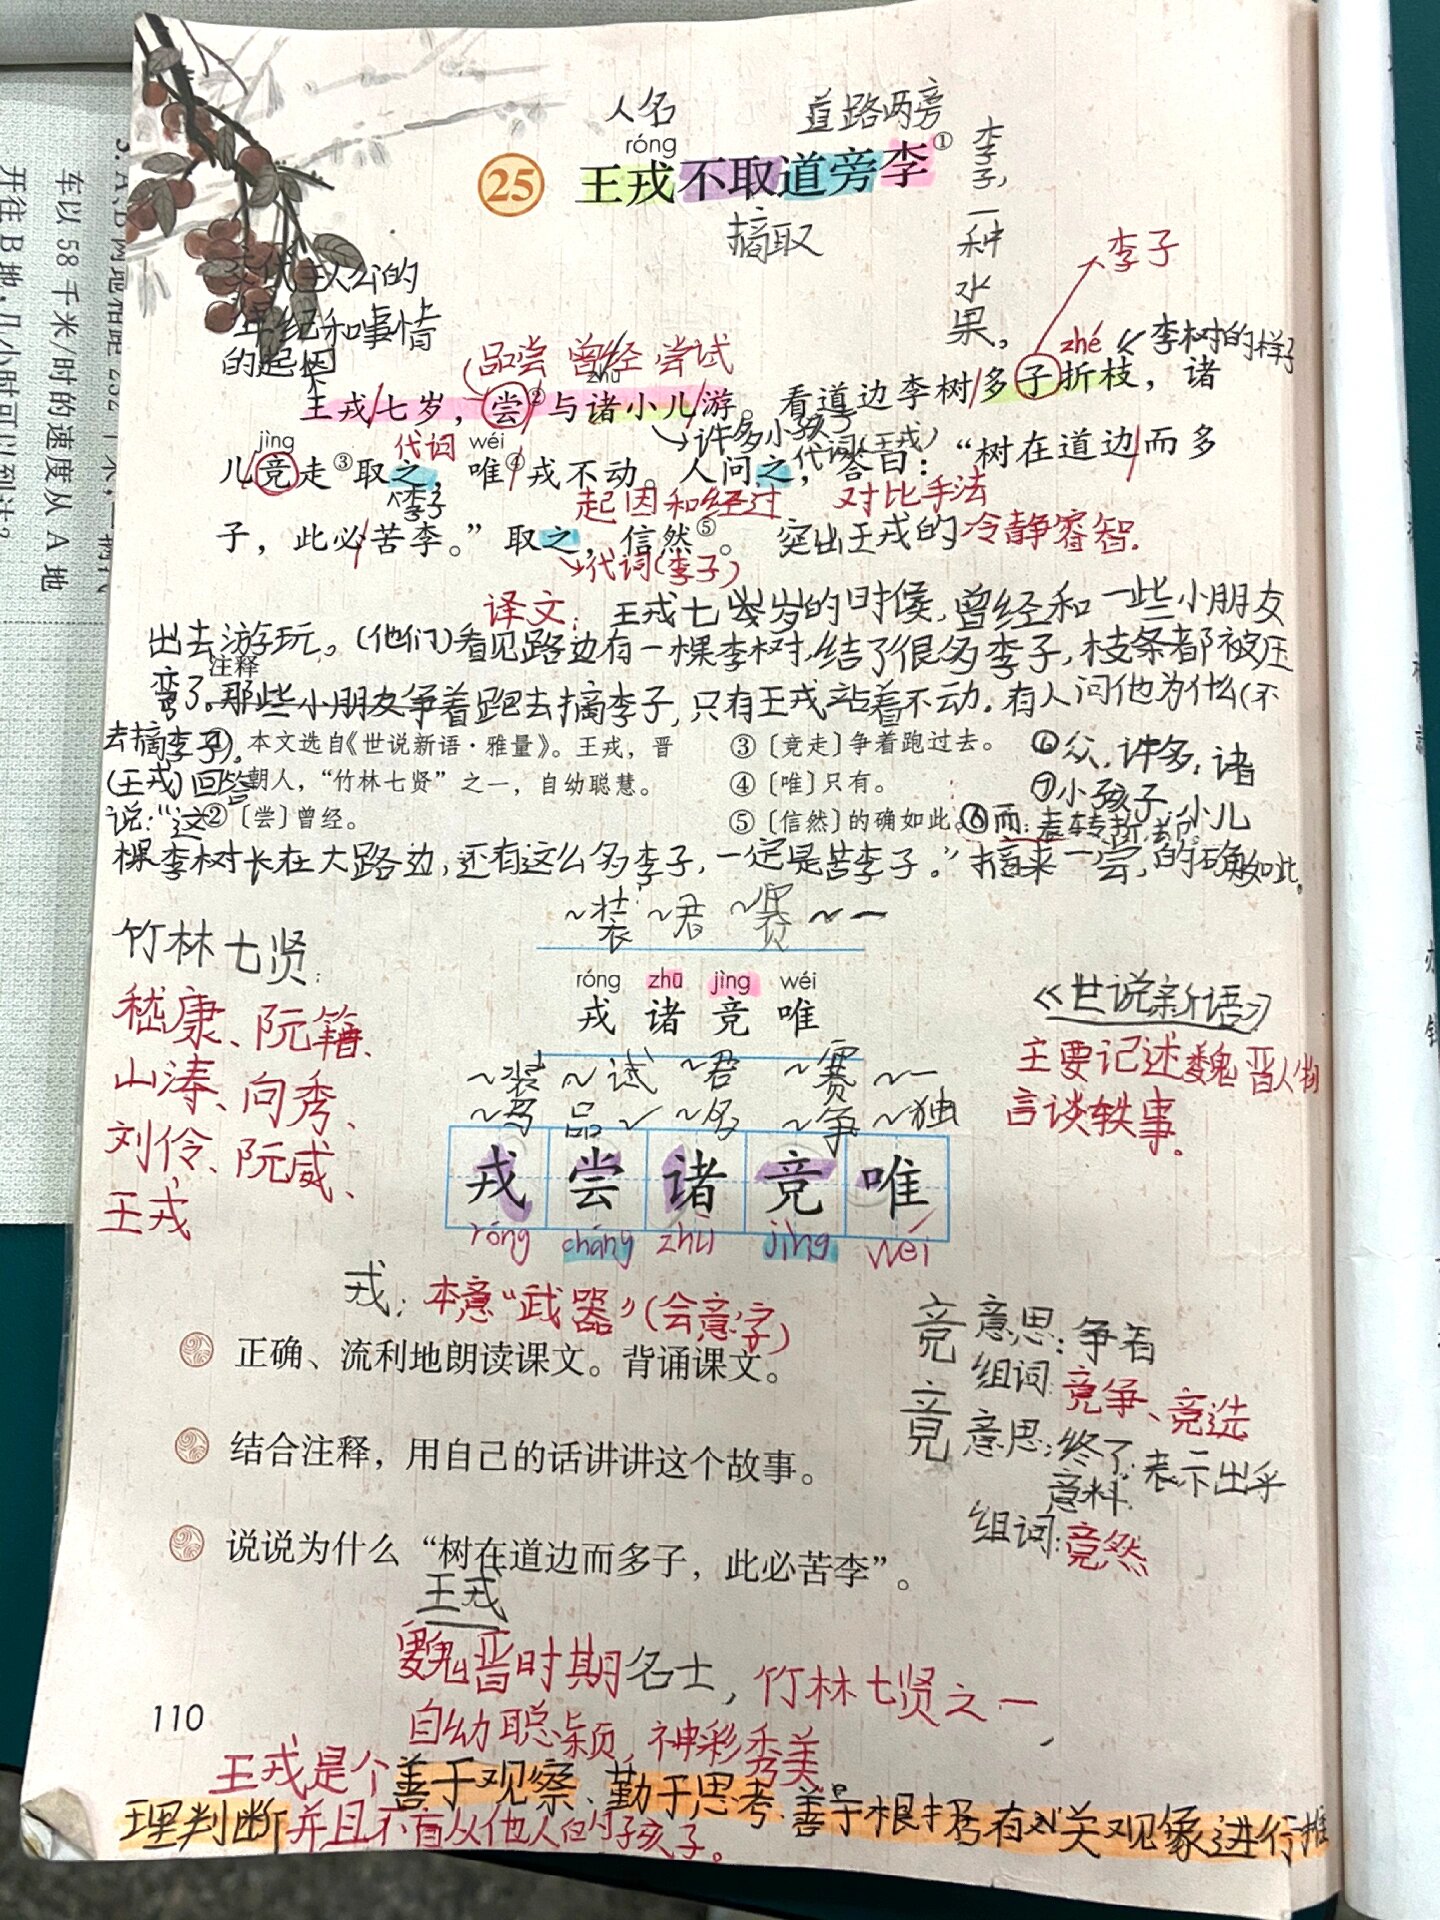 人名
道路两旁
róng
25 王戎不取道旁李①
李子，一种水果。
摘取
李子
交代主人公的
年纪和事情
的起因
品尝 曾经 尝试
zhū
zhé
李树的样子
王戎/七岁，尝②/与诸小儿/游。看道边李树/多子折枝，诸
许多小孩子
jìng
代词
wéi
代词(王戎)
儿竞走③取之，唯④/戎不动。人问之，答曰：“树在道边/而多
李子
起因和经过
对比手法
子，此必/苦李。”取之，信然⑤。
突出王戎的冷静睿智.
代词(李子)
译文：王戎七岁的时候，曾经和一些小朋友
出去游玩。(他们)看见路边有一棵李树，结了很多李子，枝条都被压
注释
弯了。那些小朋友争着跑去摘李子，只有王戎站着不动。有人问他为什么(不
去摘李子)。
① 本文选自《世说新语·雅量》。王戎，晋
③〔竞走〕争着跑过去。
⑥众，许多：诸
(王戎)回答
朝人，“竹林七贤”之一，自幼聪慧。
④〔唯〕只有。
⑦小孩子：小儿
说：“这
②〔尝〕曾经。
⑤〔信然〕的确如此。
⑥而：表转折，却。
棵李树长在大路边，还有这么多李子，一定是苦李子。”摘来一尝，的确如此。
~装 ~君 ~赛 ~一
竹林七贤：
róng zhū jìng wéi
戎 诸 竞 唯
《世说新语》
嵇康、阮籍、
主要记述魏晋人物
言谈轶事。
山涛、向秀、
~装 ~试 ~君 ~赛 ~一
~马 品~ ~多 ~争 ~独
刘伶、阮咸、
戎 尝 诸 竞 唯
王戎
róng cháng zhū jìng wéi
戎：本意“武器”(会意字)
竞 意思：争着
正确、流利地朗读课文。背诵课文。
组词：竞争、竞选
竟 意思：终了，表示出乎
意料
结合注释，用自己的话讲讲这个故事。
组词：竟然
说说为什么“树在道边而多子，此必苦李”。
王戎
魏晋时期名士，竹林七贤之一，
110
自幼聪颖，神彩秀美
王戎是个善于观察、勤于思考、善于根据有关现象进行推
理判断并且不盲从他人的孩子。
3. A、B两地相距 232 千米，一辆
车以 58 千米/时的速度从 A 地
开往 B 地，几小时可以到达？